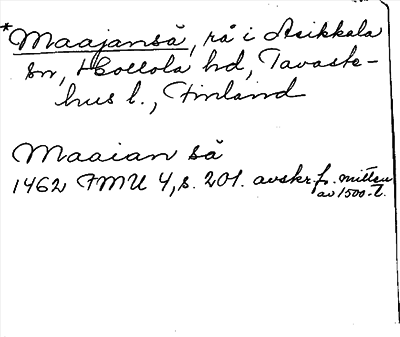 *Maajanså, rå i Asikkala
sn, Hollola hd, Tavaste-
hus l., Finland
Maaian så
1462 FMU 4, s. 201. avskr. fr. mitten
av 1500-t.